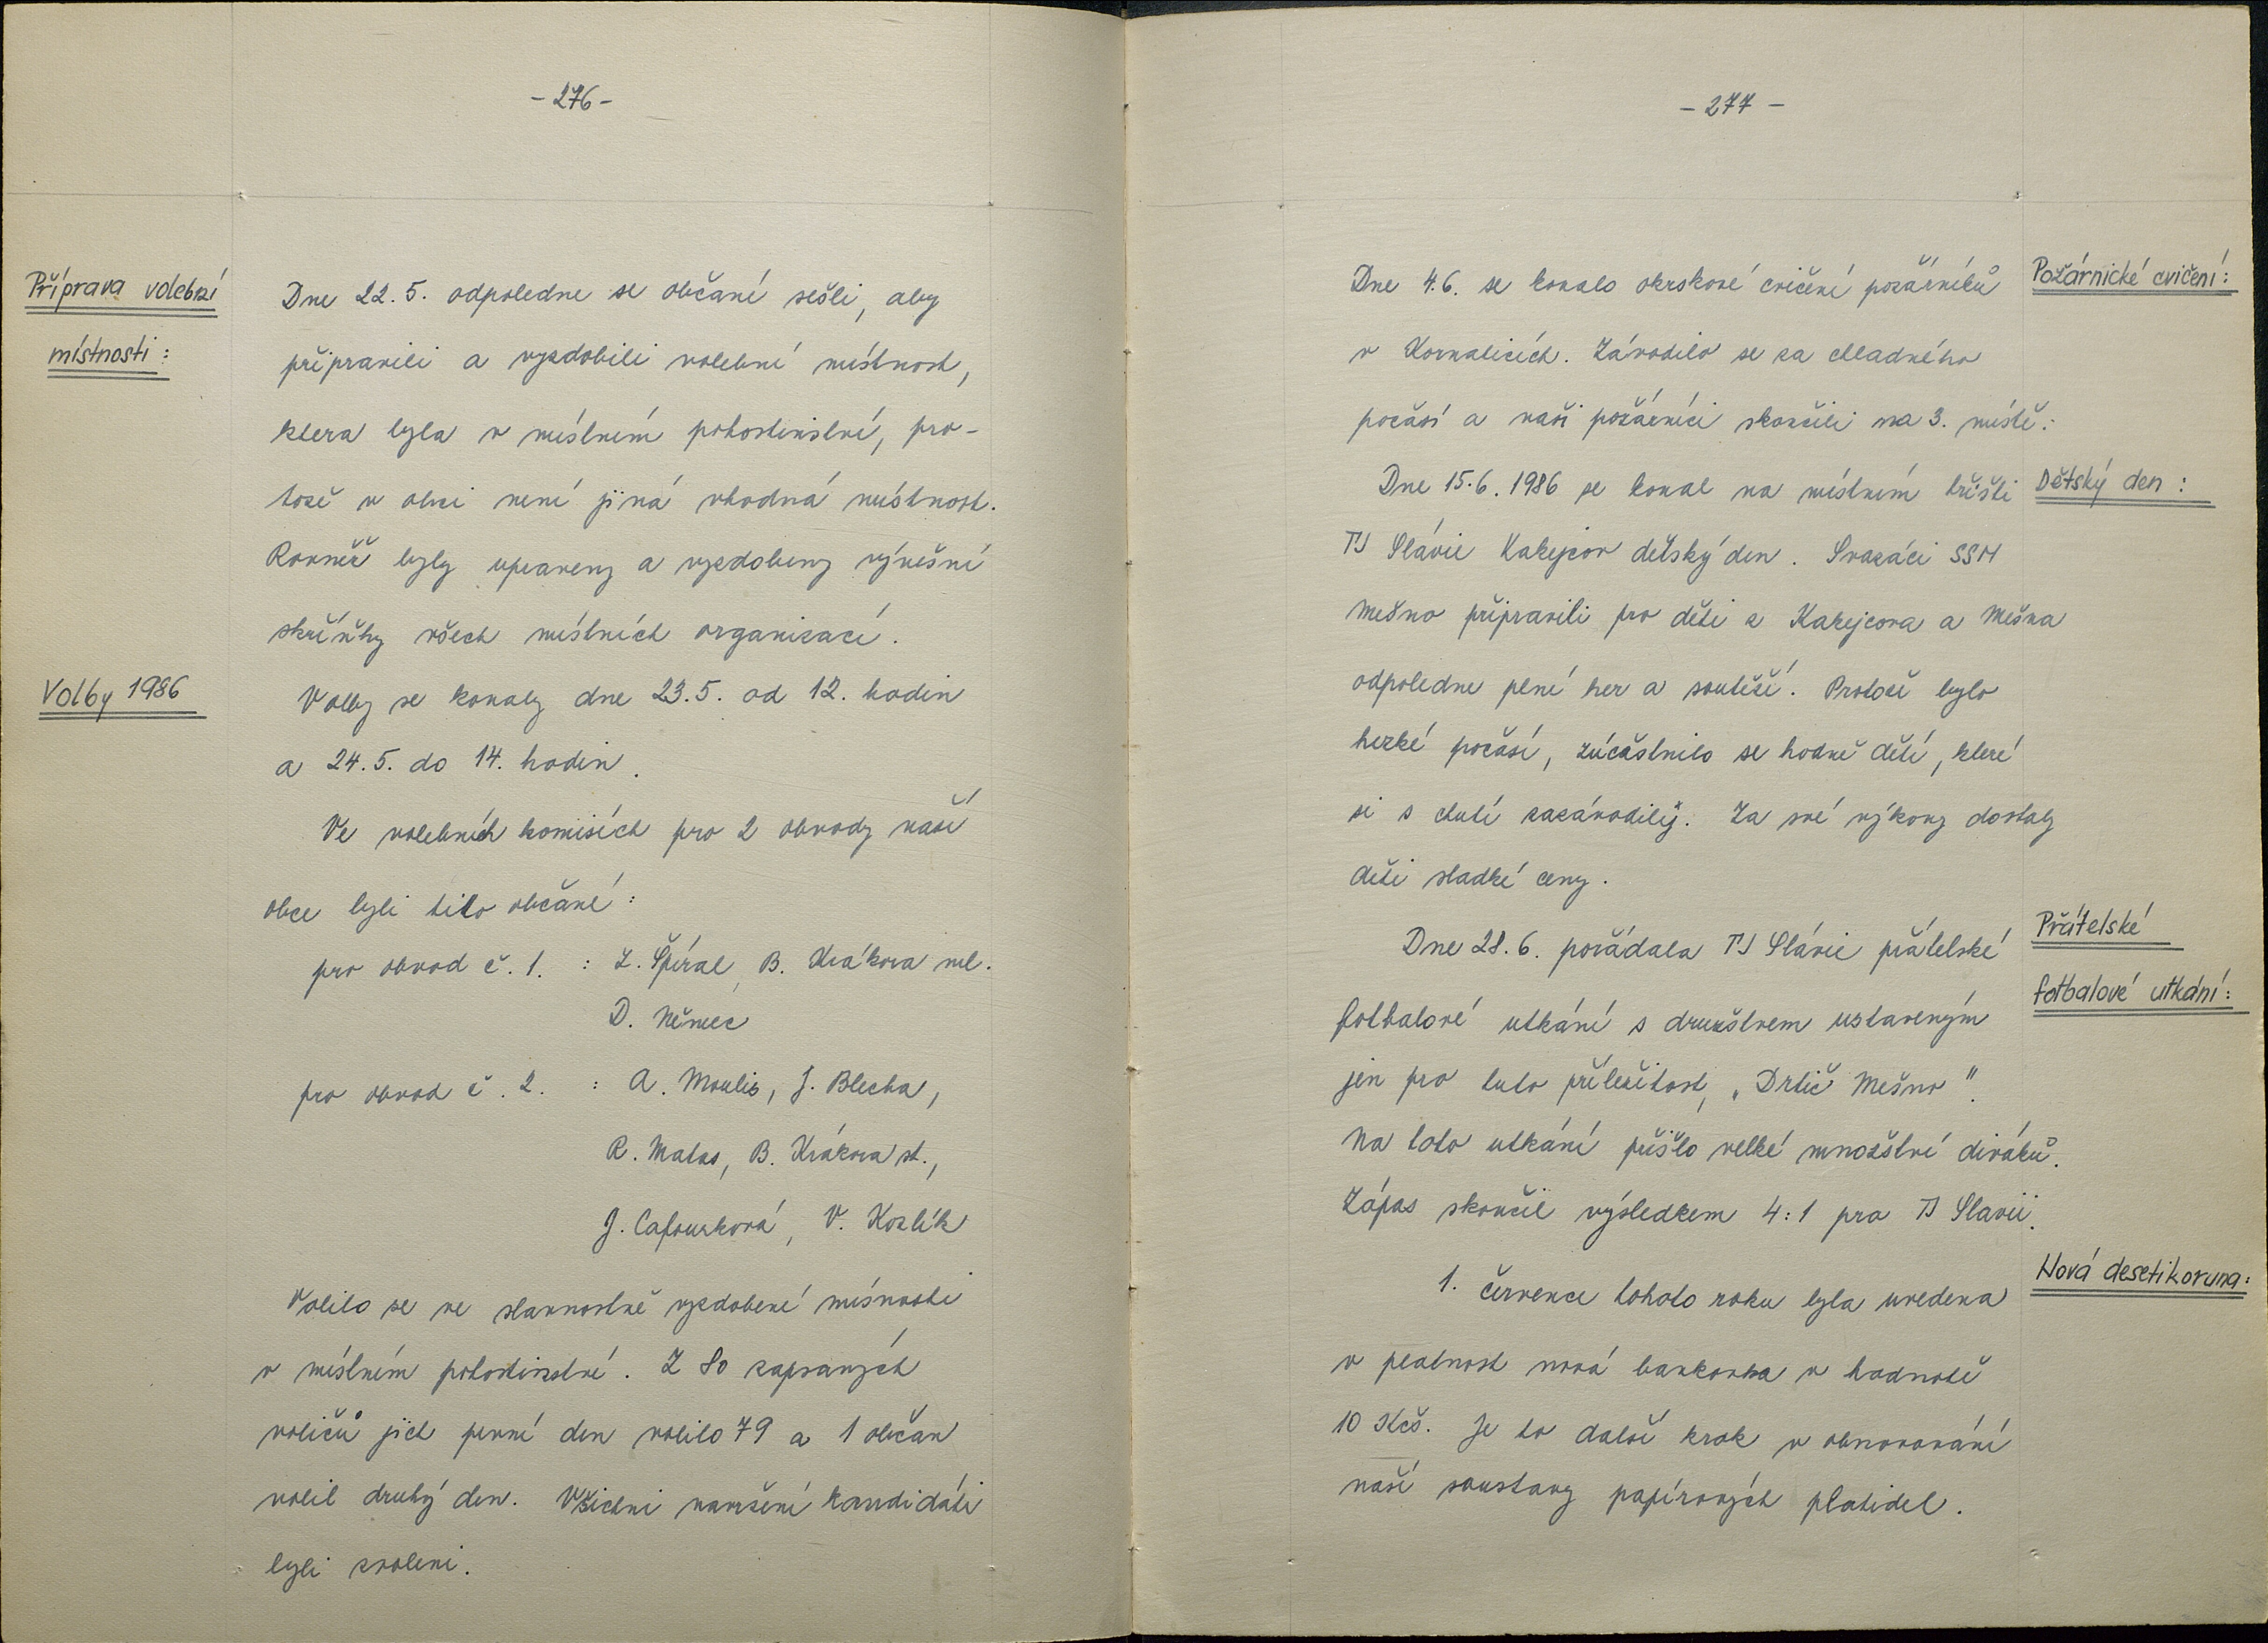 - 276 -
Příprava volební
místnosti :
Dne 22.5. odpoledne se občané sešli, aby
připravili a vyzdobili volební místnost,
která byla v místním pohostinství, pro-
tože v obci není jiná vhodná místnost.
Rovněž byly upraveny a vyzdobeny vývěsní
skříňky všech místních organizací.
Volby 1986
Volby se konaly dne 23.5. od 12. hodin
a 24.5. do 14. hodin.
Ve volebních komisích pro 2 obvody naší
obce byli tito občané :
pro obvod č. 1. : Z. Špíral, B. Krákora ml.
D. Němec
pro obvod č. 2. : A. Moulis, J. Blecha,
R. Matas, B. Krákora st.,
J. Cafourková, V. Kozlík
Volilo se ve slavnostně vyzdobené mísnosti
v místním pohostinství. Z 80 zapsaných
voličů jich první den volilo 79 a 1 občan
volil druhý den. Všichni navržení kandidáti
byli zvoleni.
- 277 -
Dne 4.6. se konalo okrskové cvičení požárníků
Požárnické cvičení :
v Kornaticích. Závodilo se za chladného
počasí a naši požárníci skončili na 3. místě.
Dne 15.6.1986 se konal na místním hřišti
Dětský den :
TJ Slávie Kakejcov dětský den. Svazáci SSM
Mešno připravili pro děti z Kakejcova a Mešna
odpoledne plné her a soutěží. Protože bylo
hezké počasí, zúčastnilo se hodně dětí, které
si s chutí zazávodily. Za své výkony dostaly
děti sladké ceny.
Přátelské
Dne 28.6. pořádala TJ Slávie přátelské
fotbalové utkání :
fotbalové utkání s družstvem ustaveným
jen pro tuto příležitost, „Drtič Mešno".
Na toto utkání přišlo velké množství diváků.
Zápas skončil výsledkem 4:1 pro TJ Slavii.
Nová desetikoruna :
1. července tohoto roku byla uvedena
v platnost nová bankovka v hodnotě
10 Kčs. Je to další krok v obnovování
naší soustavy papírových platidel.